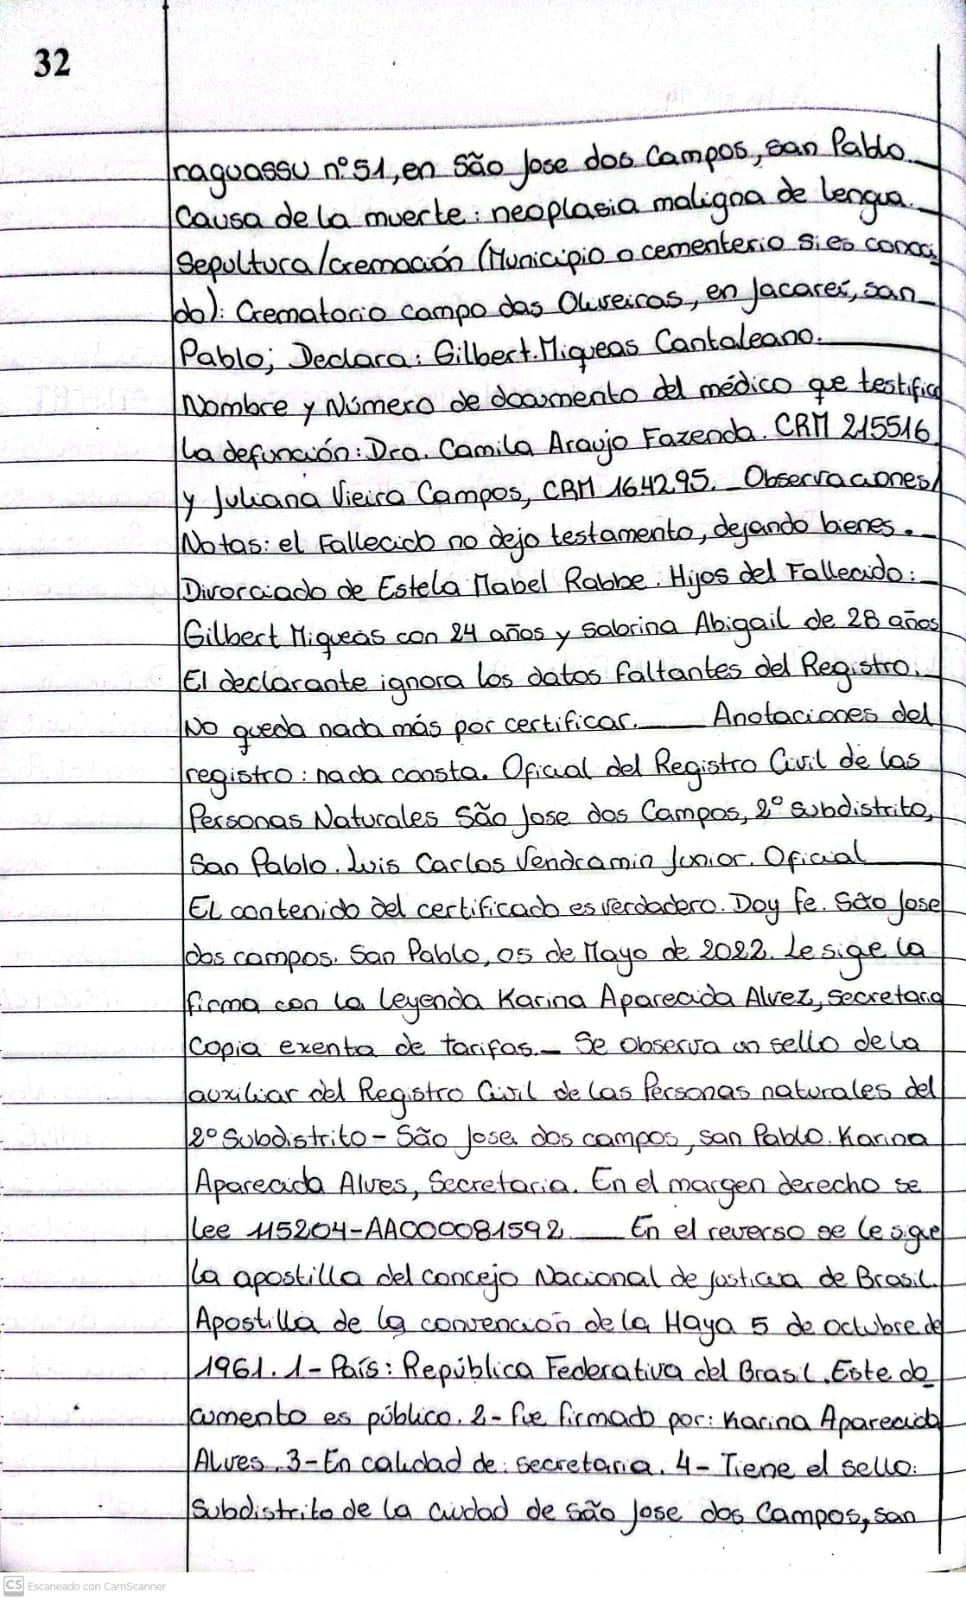 32
raguassu nº 51, en São Jose dos Campos, san Pablo.
Causa de la muerte: neoplasia maligna de lengua.
Sepultura/cremación (Municipio o cementerio si es conoci
do): Crematorio campo das Oliveiras, en Jacareí, san
Pablo; Declara: Gilbert Miqueas Cantaleano.
Nombre y Número de documento del médico que testifica
la defunción: Dra. Camila Araujo Fazenda. CRM 215516
y Juliana Vieira Campos, CRM 164295. Observaciones/
Notas: el Fallecido no dejo testamento, dejando bienes.
Divorciado de Estela Mabel Rabbe. Hijos del Fallecido:
Gilbert Miqueas con 24 años y Sabrina Abigail de 28 años
El declarante ignora los datos faltantes del Registro.
No queda nada más por certificar. Anotaciones del
registro: nada consta. Oficial del Registro Civil de las
Personas Naturales São Jose dos Campos, 2º subdistrito,
San Pablo. Luis Carlos Vendramin Junior. Oficial
El contenido del certificado es verdadero. Doy fe. São Jose
dos campos. San Pablo, 05 de Mayo de 2022. Le sige la
firma con la leyenda Karina Aparecida Alvez, secretaria
Copia exenta de tarifas. Se observa un sello de la
auxiliar del Registro Civil de las Personas naturales del
2º Subdistrito - São Jose dos campos, san Pablo. Karina
Aparecida Alves, Secretaria. En el margen derecho se
lee 115204-AA000081592 En el reverso se le sigue
la apostilla del concejo Nacional de justicia de Brasil.
Apostilla de la convención de la Haya 5 de octubre de
1961. 1- País: República Federativa del Brasil. Este do
cumento es público. 2- fue firmado por: Karina Aparecida
Alves. 3- En calidad de: secretaria. 4- Tiene el sello:
Subdistrito de la ciudad de São Jose dos Campos, san
CS Escaneado con CamScanner